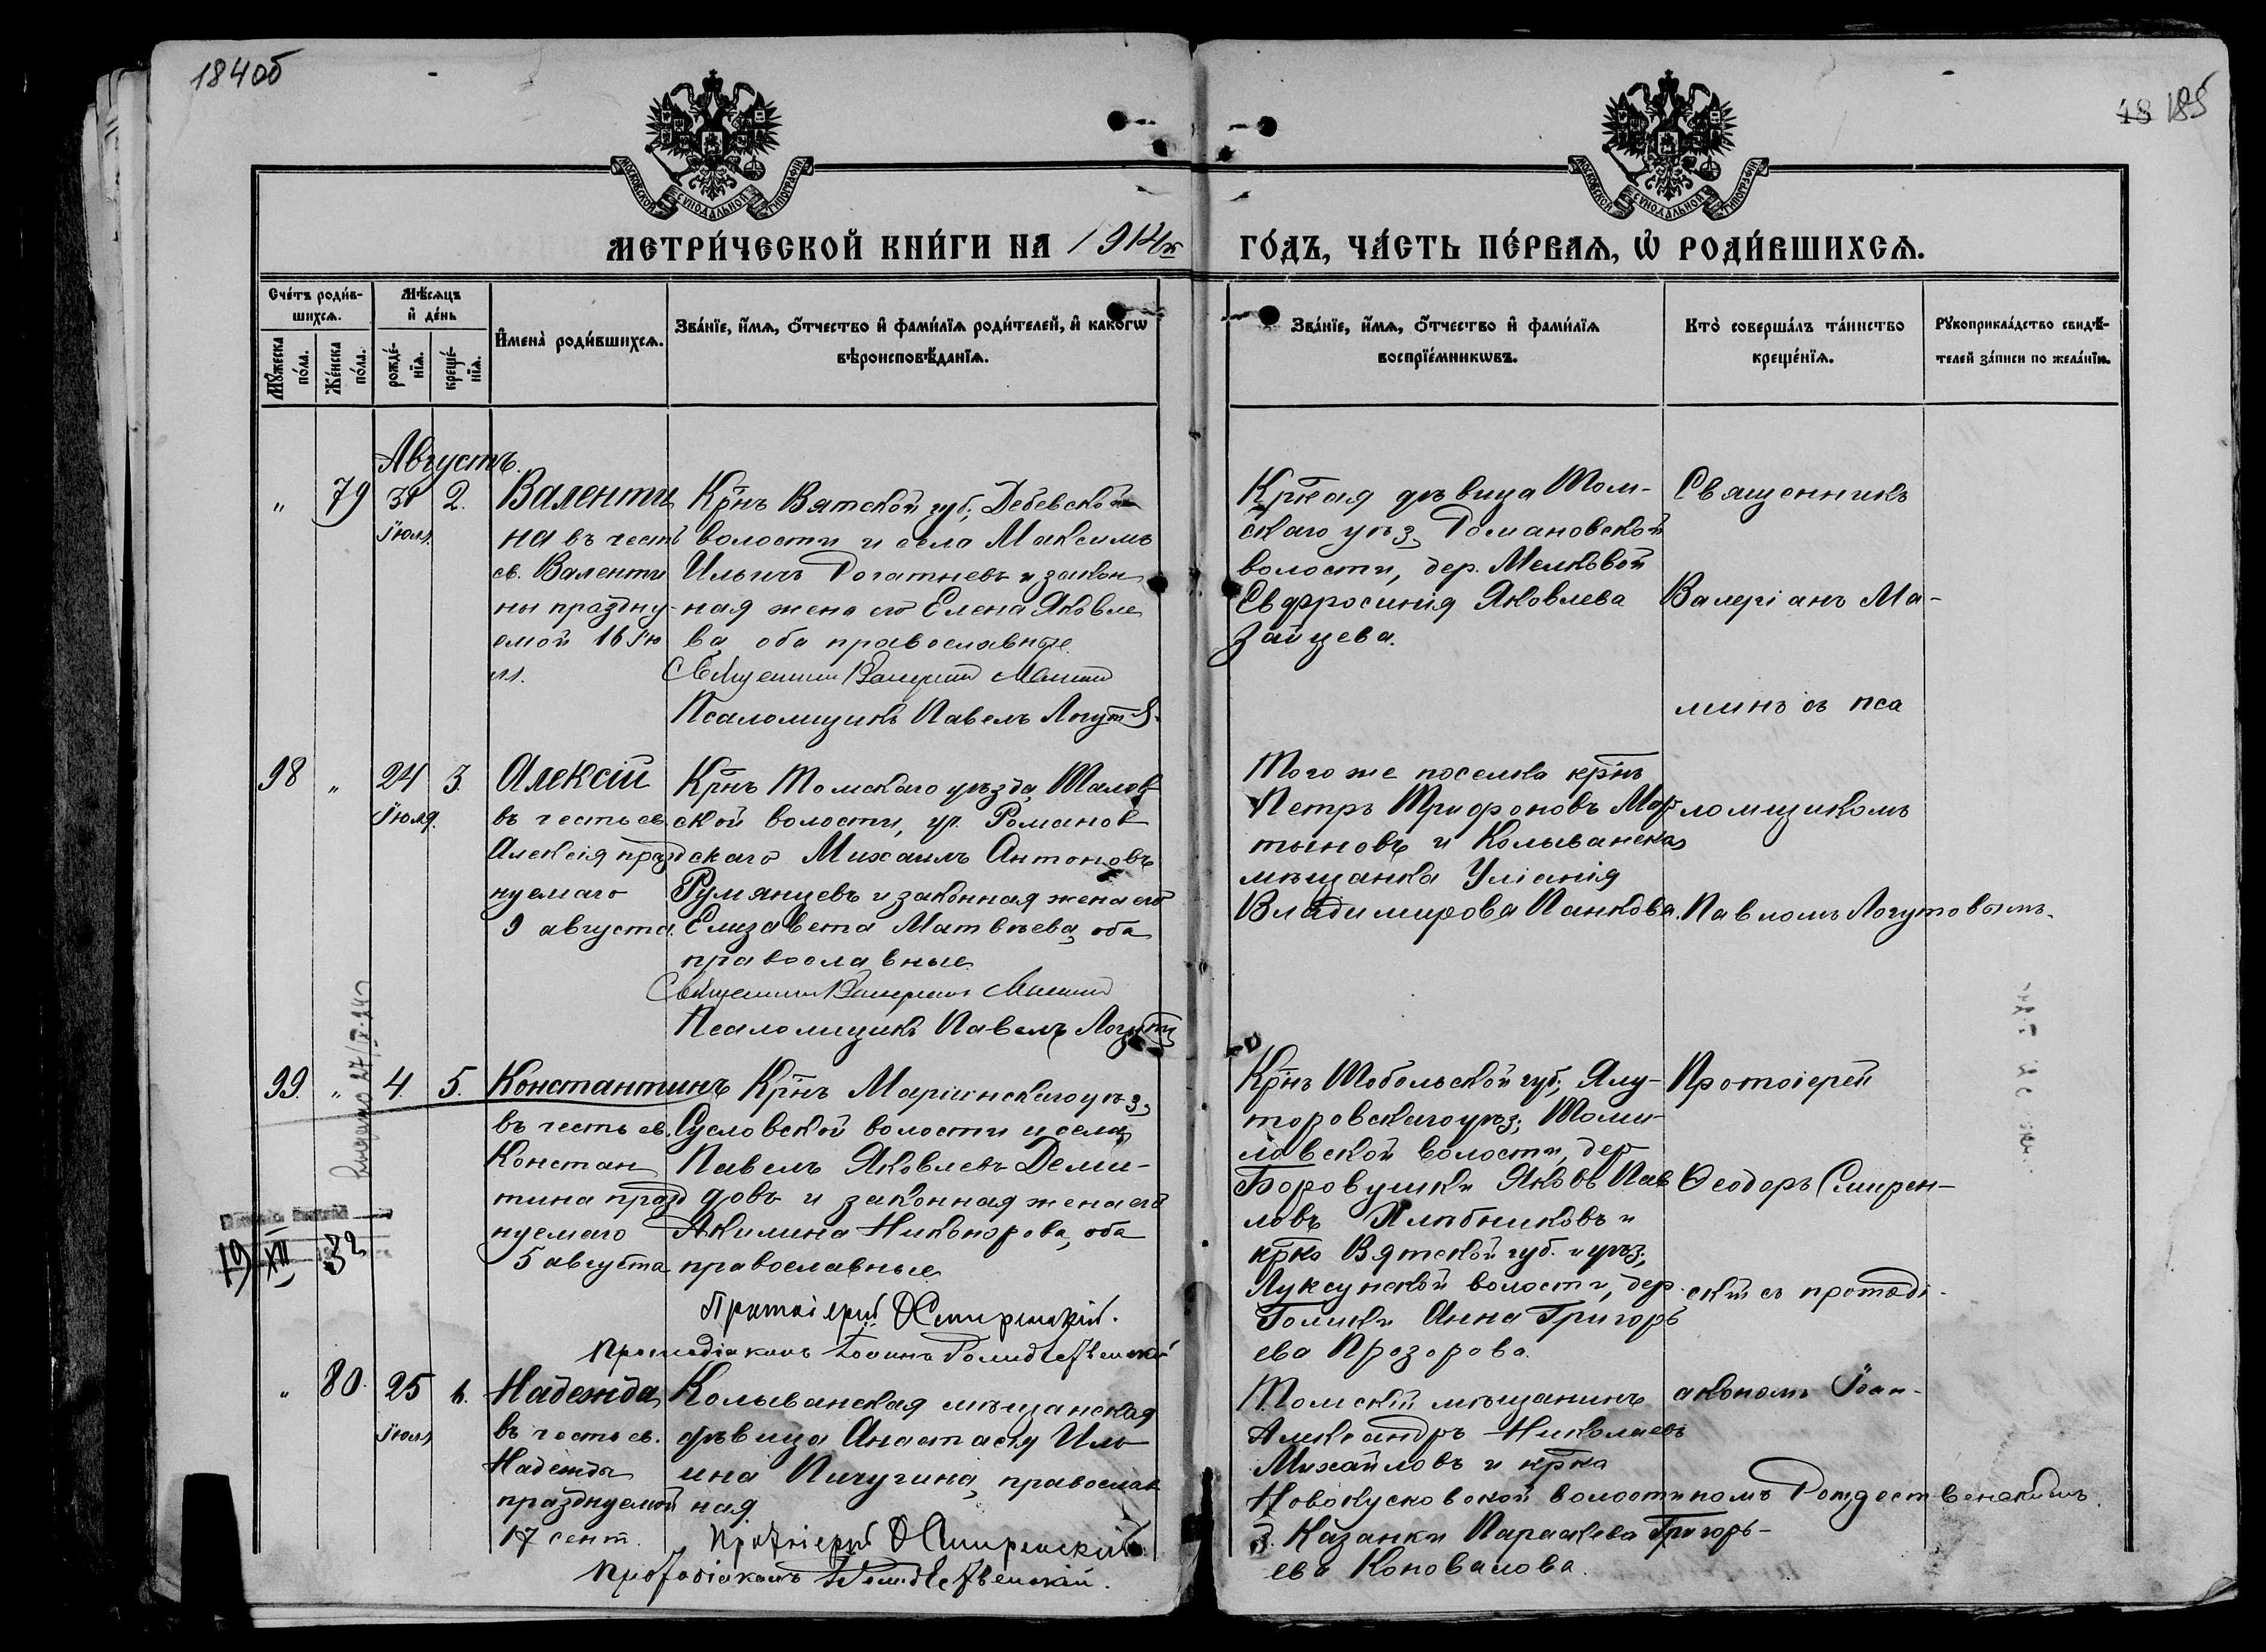 184об
48 185
МОСКОВСКОЙ СУНОДАЛЬНОЙ ТИПОГРАФІИ
МОСКОВСКОЙ СУНОДАЛЬНОЙ ТИПОГРАФІИ
МЕТРИ́ЧЕСКОЙ КНИ́ГИ НА 1914й
ГО́ДЪ, ЧА́СТЬ ПЕ́РВАѦ, Ѽ РОДИ́ВШИХСѦ.
Сче́тъ роди́в-
шихсѧ.
Мꙋ́жеска по́ла.
Же́нска по́ла.
Мѣ́сѧцъ
и҆ де́нь
рожде́-
нїѧ.
креще́-
нїѧ.
И҆мена̀ роди́вшихсѧ.
Зва́нїе, и҆́мѧ, ѻ҆́тчество и҆ фами́лїѧ роди́телей, и҆ како́гѡ
вѣроисповѣ́данїѧ.
Зва́нїе, и҆́мѧ, ѻ҆́тчество и҆ фами́лїѧ
воспрїе́мникѡвъ.
Кто̀ соверша́лъ та́инство
креще́нїѧ.
Рꙋкоприкла́дство свидѣ́-
телей за́писи по жела́нїю.
Августъ.
" 79 31 2.
Іюля.
Валенти
на въ честь
св. Валенти
ны праздну-
емой 16 Ію
ля.
Кр̃нъ Вятской губ., Дебевской
волости и села Максимъ
Ильичъ Рогатневъ и закон
ная жена его Елена Яковле
ва, оба православные.
Священникъ Валеріанъ Маминъ
Псаломщикъ Павелъ Логутовъ.
Кр̃ская дѣвица Том-
скаго уѣз., Романовской
волости, дер. Мелковой
Евфросинія Яковлева
Зайцева.
Священникъ
Валеріанъ Ма-
минъ съ пса
98 " 24 3.
Іюля.
Алексій
въ честь св.
Алексія празд
нуемаго
9 августа.
Кр̃нъ Томскаго уѣзда, Шалов
ской волости, ур. Романов
скаго Михаилъ Антоновъ
Румянцевъ и законная жена его
Елизавета Матвѣева, оба
православные.
Священникъ Валеріанъ Маминъ
Псаломщикъ Павелъ Логутовъ
Того же поселка кр̃нъ
Петръ Трифоновъ Мар
тыновъ и Колыванская
мѣщанка Уліанія
Владимирова Панкова.
ломщикомъ
Павломъ Логутовымъ.
99. " 4. 5.
27/IX-14
19 XII 32
Константинъ
въ честь св.
Констан
тина празд
нуемаго
5 августа
Кр̃нъ Маріинскаго уѣз.,
Сусловской волости и села
Павелъ Яковлевъ Деми-
довъ и законная жена его
Акилина Никонорова, оба
православные.
Протоіерей Ѳ Смиренскій.
Протодіаконъ Іоаннъ Рождественскій
Кр̃нъ Тобольской губ., Ялу-
торовскаго уѣз., Томи-
ловской волости, дер
Боровушки Яковъ Пав
ловъ Хлѣбниковъ и
кр̃ка Вятской губ. и уѣз.,
Луксунской волости, дер.
Гомики Анна Григорь
ева Прозорова.
Протоіерей
Ѳеодоръ Смирен-
скій съ протоді-
" 80. 25 6.
Іюля
Надежда
въ честь св.
Надежды
празднуемой
17 сент.
Колыванская мѣщанская
дѣвица Анастасія Иль
ина Пичугина, православ
ная.
Протоіерей Ѳ Смиренскій
Протодіаконъ І Рождественскій.
Томскій мѣщанинъ
Александръ Николаевъ
Михайловъ и кр̃ка
Новокусковской волости
д. Казанки Параскева Григорь-
ева Коновалова.
акономъ Іоан-
номъ Рождественскимъ.